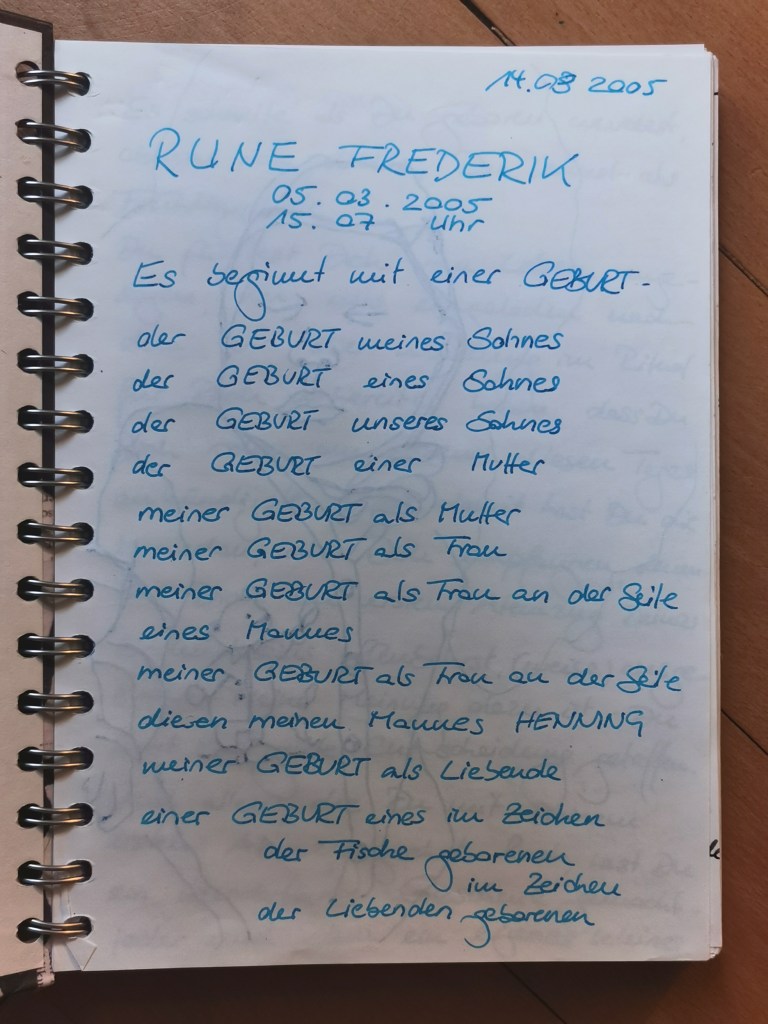 14.03 2005
RUNE FREDERIK
05.03.2005
15.07 Uhr
Es beginnt mit einer GEBURT-
der GEBURT meines Sohnes
der GEBURT eines Sohnes
der GEBURT unseres Sohnes
der GEBURT einer Mutter
meiner GEBURT als Mutter
meiner GEBURT als Frau
meiner GEBURT als Frau an der Seite
eines Mannes
meiner GEBURT als Frau an der Seite
diesen meinen Mannes HENNING
meiner GEBURT als Liebende
einer GEBURT eines im Zeichen
der Fische geborenen
im Zeichen
der Liebenden geborenen